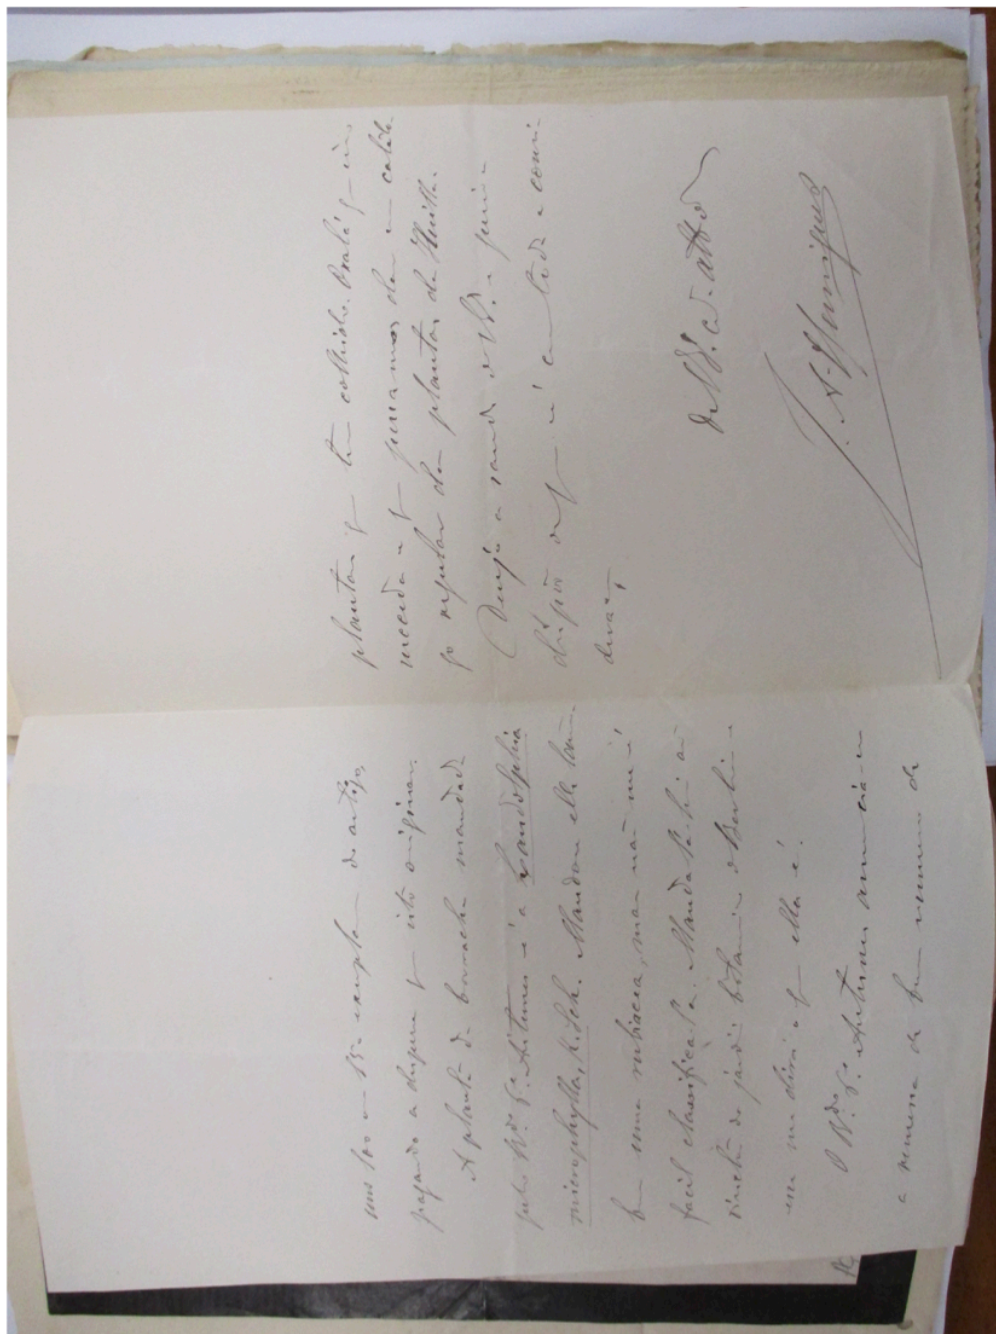 uns 100 ou 150 exemplares do artigo,
pagando a despesa q isto originar.
A planta da borracha mandada
pelo Rdo Pe Antunes é a Landolphia
microphylla, K. Sch. Mandou elle tam-
bem uma rubiacea, mas não me é
facil classifical-a. Mandal-a-hei ao
director do jardim botanico de Berlim e
esse me dirá o q ella é.
O Rdo Pe Antunes annuncia-me
a remessa de bom numero de
plantas q tem colhido. Oxalá q
succeda e q possamos dar um catalo-
go regular das plantas da Huilla.
Desejo a saude de V. Ex.
disposição de q é com toda a consi-
deração
De V. Ex. cr. atto
J. A. Henriques